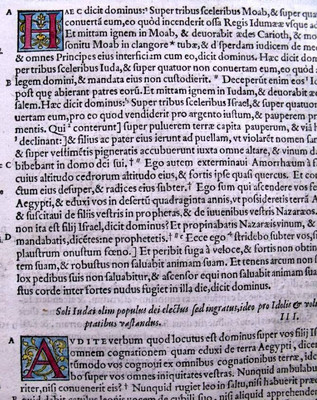 A HAEC dicit dominus: Super tribus sceleribus Moab, & super qua
conuertā eum, eo quòd incenderit ossa Regis Idumææ vsque
Et mittam ignem in Moab, & deuorabit ædes Carioth, & mo
sonitu Moab in clangore tubæ, & dispердam iudicem de me
& omnes Principes eius interficiam cum eo, dicit dominus. Hæc dic
per tribus sceleribus Iuda, & super quatuor non conuertam eum, eo quòd
B legem domini, & mandata eius non custodierit. Deceperũt enim eos I
post quæ abierant patres eorũ. Et mittam ignem in Iudam, & deuorabit æd
salem. Hæc dicit dominus: Super tribus sceleribus Israel, & super quatuor
uertam eum, pro eo quòd vendiderit pro argento iustum, & pauperem pr
mentis. Qui conterunt] super puluerem terræ capita pauperum, & viā h
declinant: ] & filius ac pater eius ierunt ad puellam, vt violarēt nomen san
& super vestimētis pigneratis accubuerunt iuxta omne altare, & vinum d
C bibebāt in domo dei sui. Ego autem exterminaui Amorrhæum à f
cuius altitudo cedrorum altitudo eius, & fortis ipse quasi quercus. Et con
ctum eius desuper, & radices eius subter. Ego sum qui ascendere vos fe
Aegypti, & eduxi vos in desertũ quadraginta annis, vt possideretis terrā A
& suscitaui de filiis vestris prophetas, & de iuuenibus vestris Nazaræos.
nõ ita est filij Israel, dicit dominus? Et propinabatis Nazaræis vinum, &
D mandabatis, dicētes: ne prophetetis. Ecce ego stridebo subter vos, si
plaustrum onustum fœno. ] Et peribit fuga à veloce, & fortis non obtin
tem suam, & robustus non saluabit animam suam. Et tenens arcum non s
lox pedibus suis non saluabitur, & ascensor equi non saluabit animam sua
stus corde inter fortes nudus fugiet in illa die, dicit dominus.
Soli Iudæi olim populus dei electus sed ingratus, ideo pro Idolis & vol
ptatibus vastandus. III.
A AVDITE verbum quod locutus est dominus super vos filij Is
omnem cognationem quam eduxi de terra Aegypti, dicen
tummodo vos cognoui ex omnibus cognationibus terræ, ide
bo super vos omnes iniquitates vestras. Nunquid ambulabu
riter, nisi conuenerit eis? Nunquid rugiet leo in saltu, nisi habuerit præ